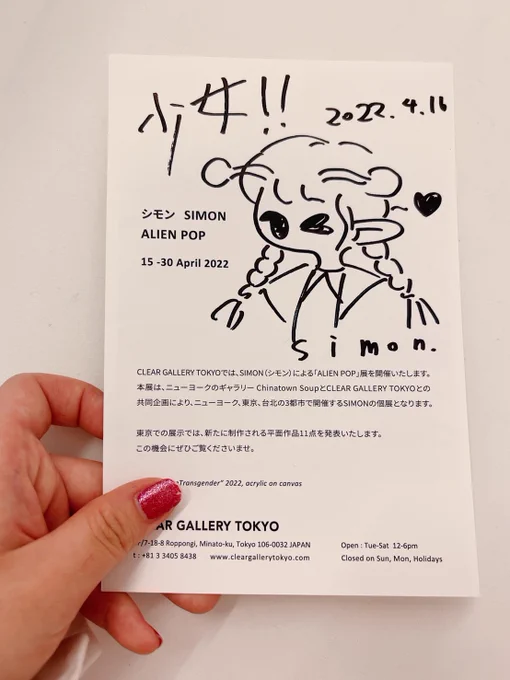 少女!!
2022.4.16
シモン SIMON
ALIEN POP
15 -30 April 2022
simon.
CLEAR GALLERY TOKYOでは、SIMON（シモン）による「ALIEN POP」展を開催いたします。
本展は、ニューヨークのギャラリー Chinatown SoupとCLEAR GALLERY TOKYOとの
共同企画により、ニューヨーク、東京、台北の3都市で開催するSIMONの個展となります。
東京での展示では、新たに制作される平面作品11点を発表いたします。
この機会にぜひご覧くださいませ。
Transgender" 2022, acrylic on canvas
AR GALLERY TOKYO
7-18-8 Roppongi, Minato-ku, Tokyo 106-0032 JAPAN
Open : Tue-Sat 12-6pm
t : +81 3 3405 8438 www.cleargallerytokyo.com
Closed on Sun, Mon, Holidays